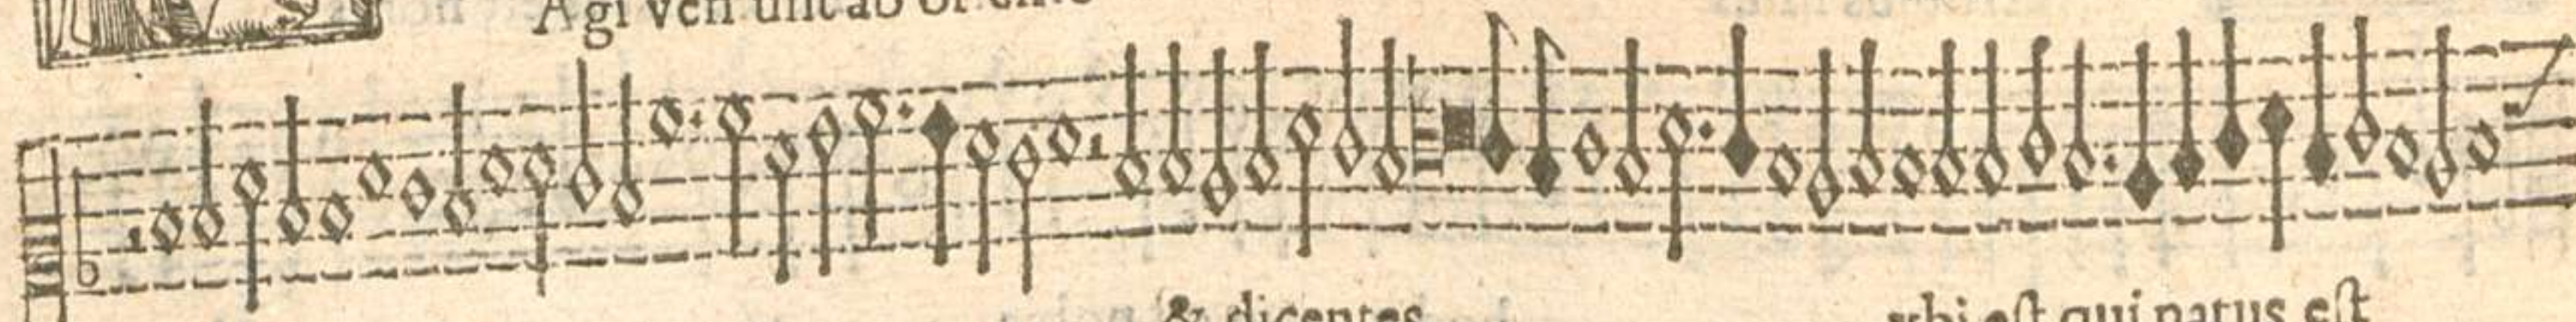 Agi ven unt ab or ente
& dicentes vbi eſt qui natus eſt